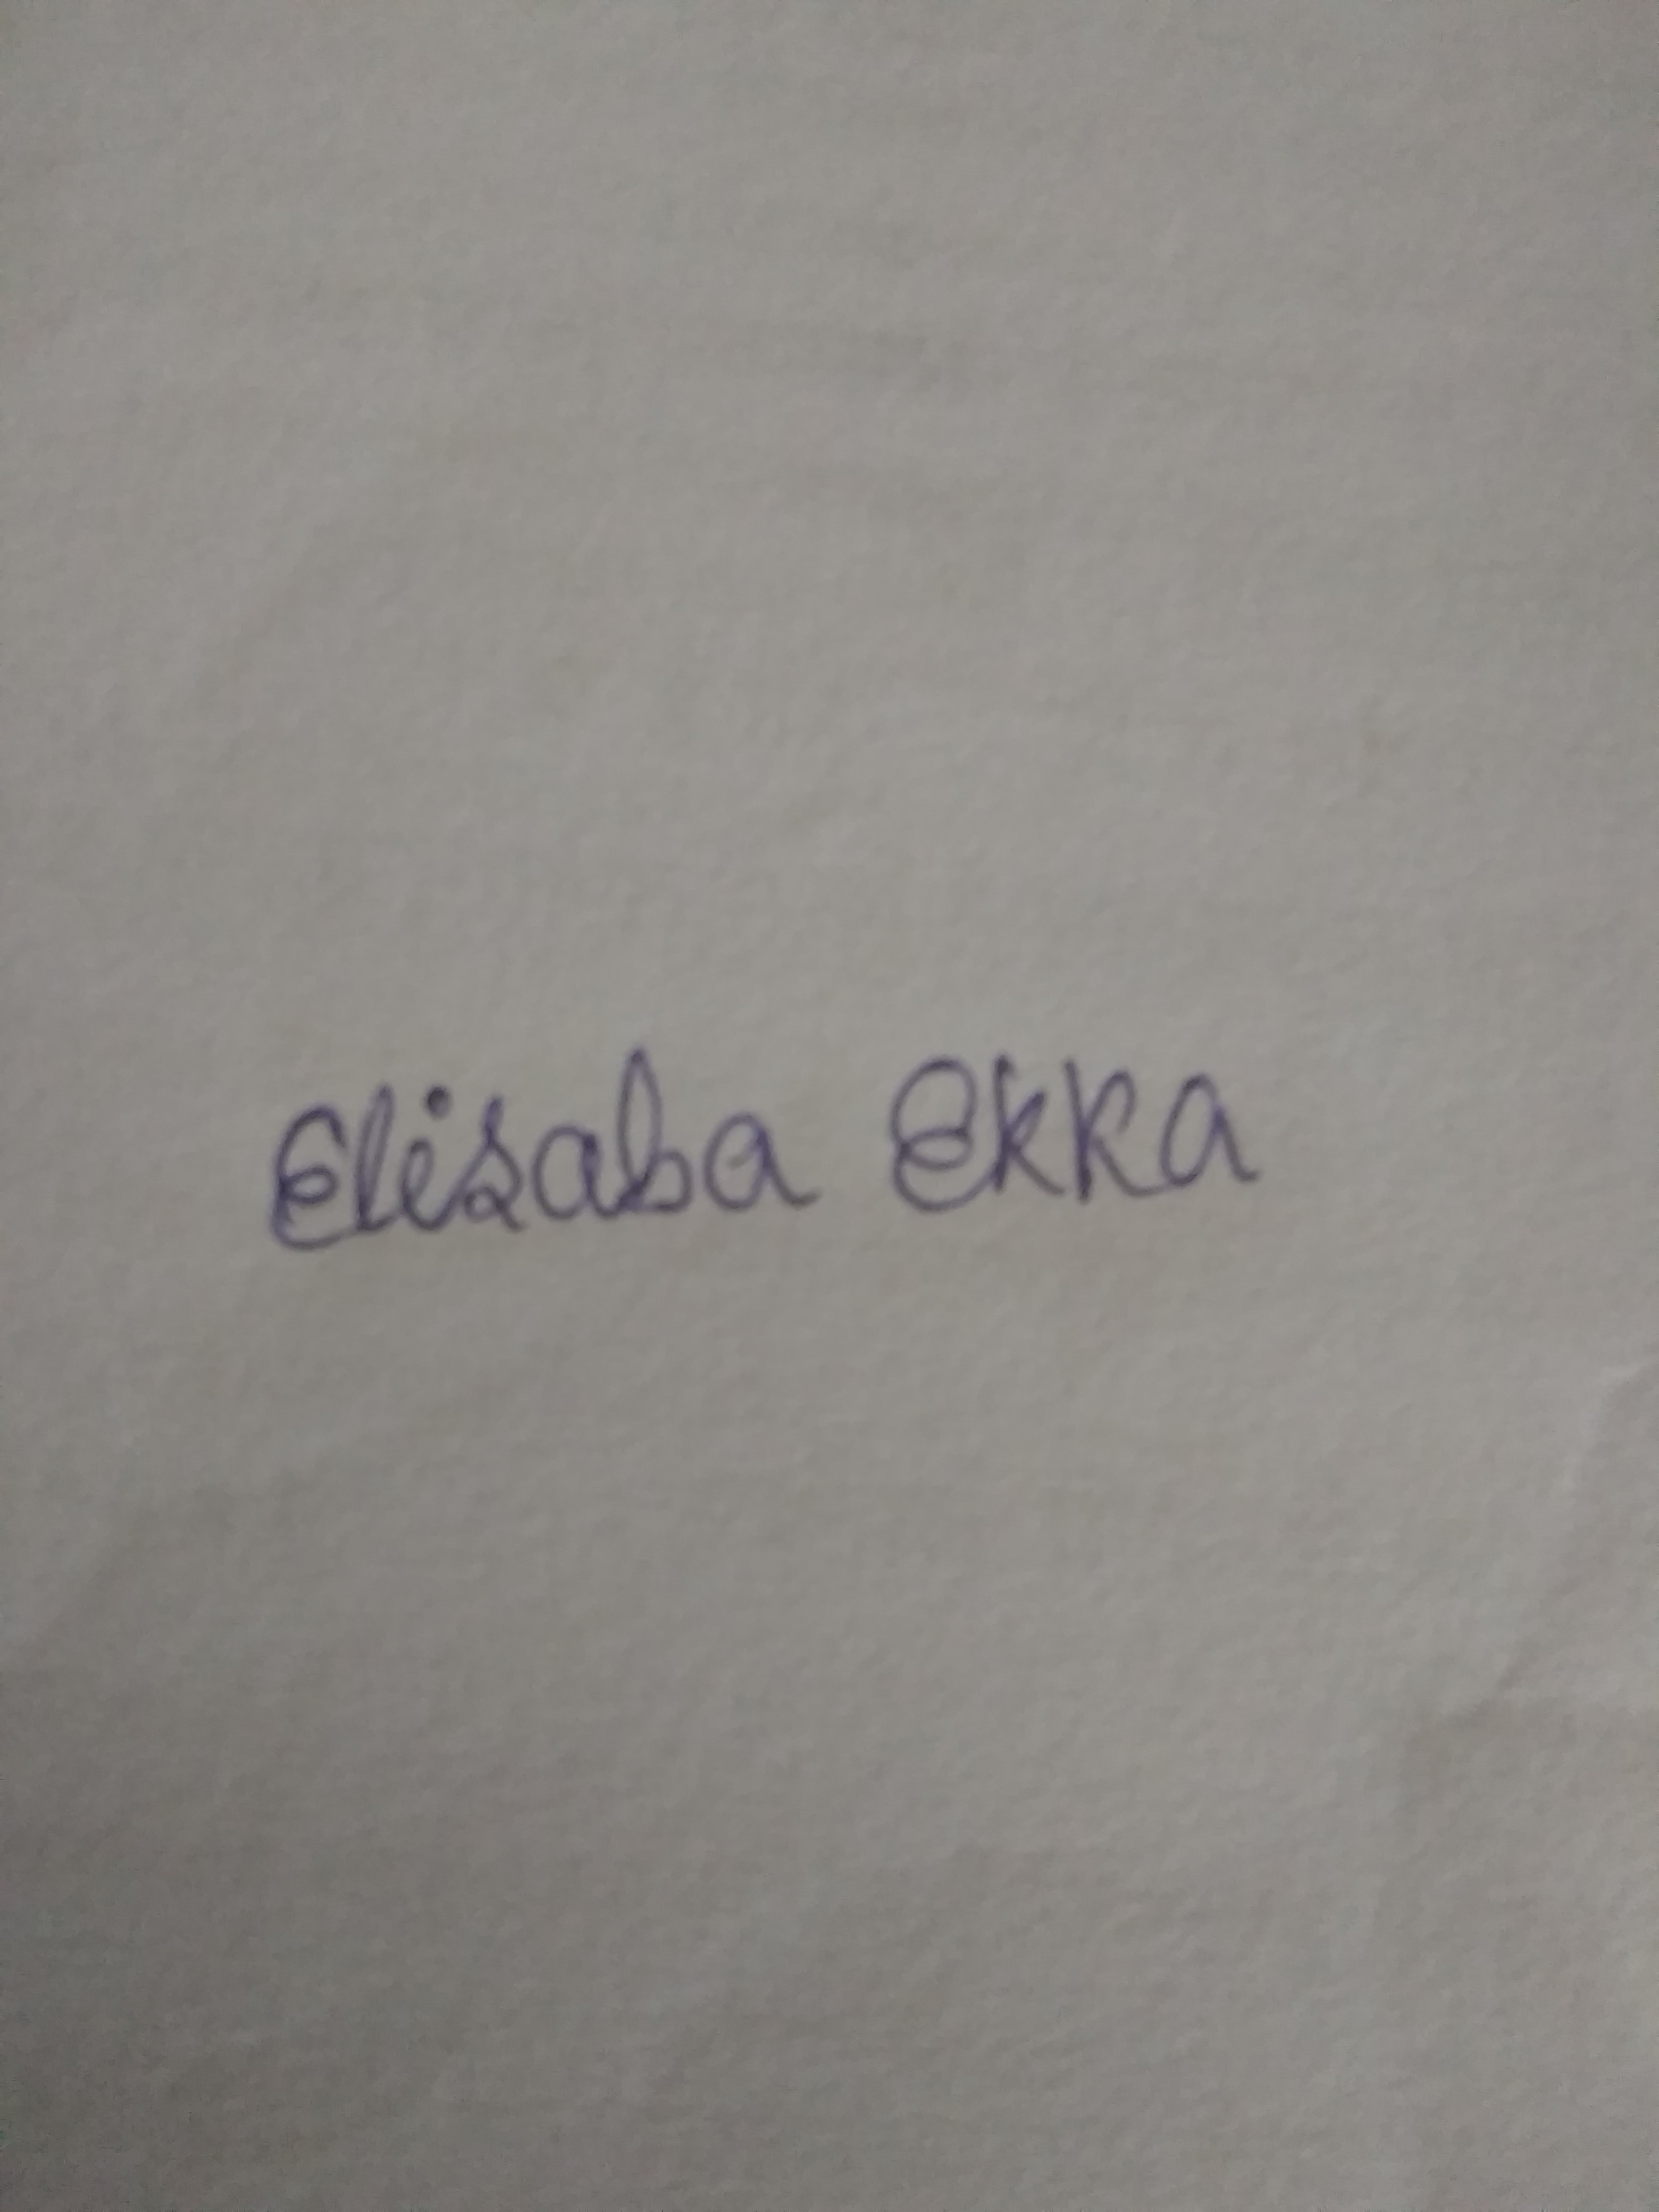 Elisaba Ekka